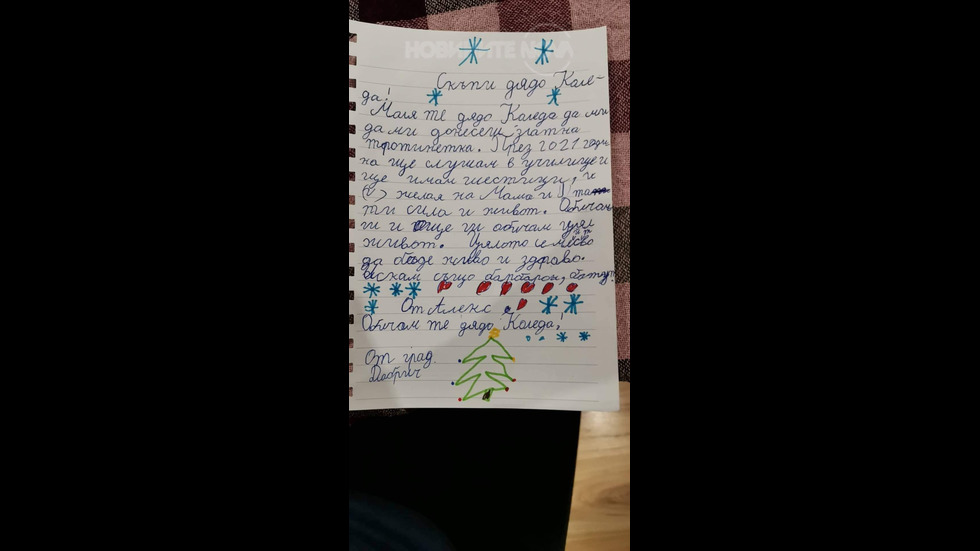 НОВИНИТЕ NOVA
Скъпи дядо Коле-
да!
Моля те дядо Коледа да ми
да ми донесеш златна
тротинетка. През 2021 годи
на ще слушам в училище и
ще имам шестици, и
(и) желая на Мама и
ти сила и живот. Обичам
ги и ще ги обичам цял
живот. Цялото семейство
да бъде живо и здраво.
Искам също барабарон,
От Алекс
Обичам те дядо Коледа!
От град.
Добрич